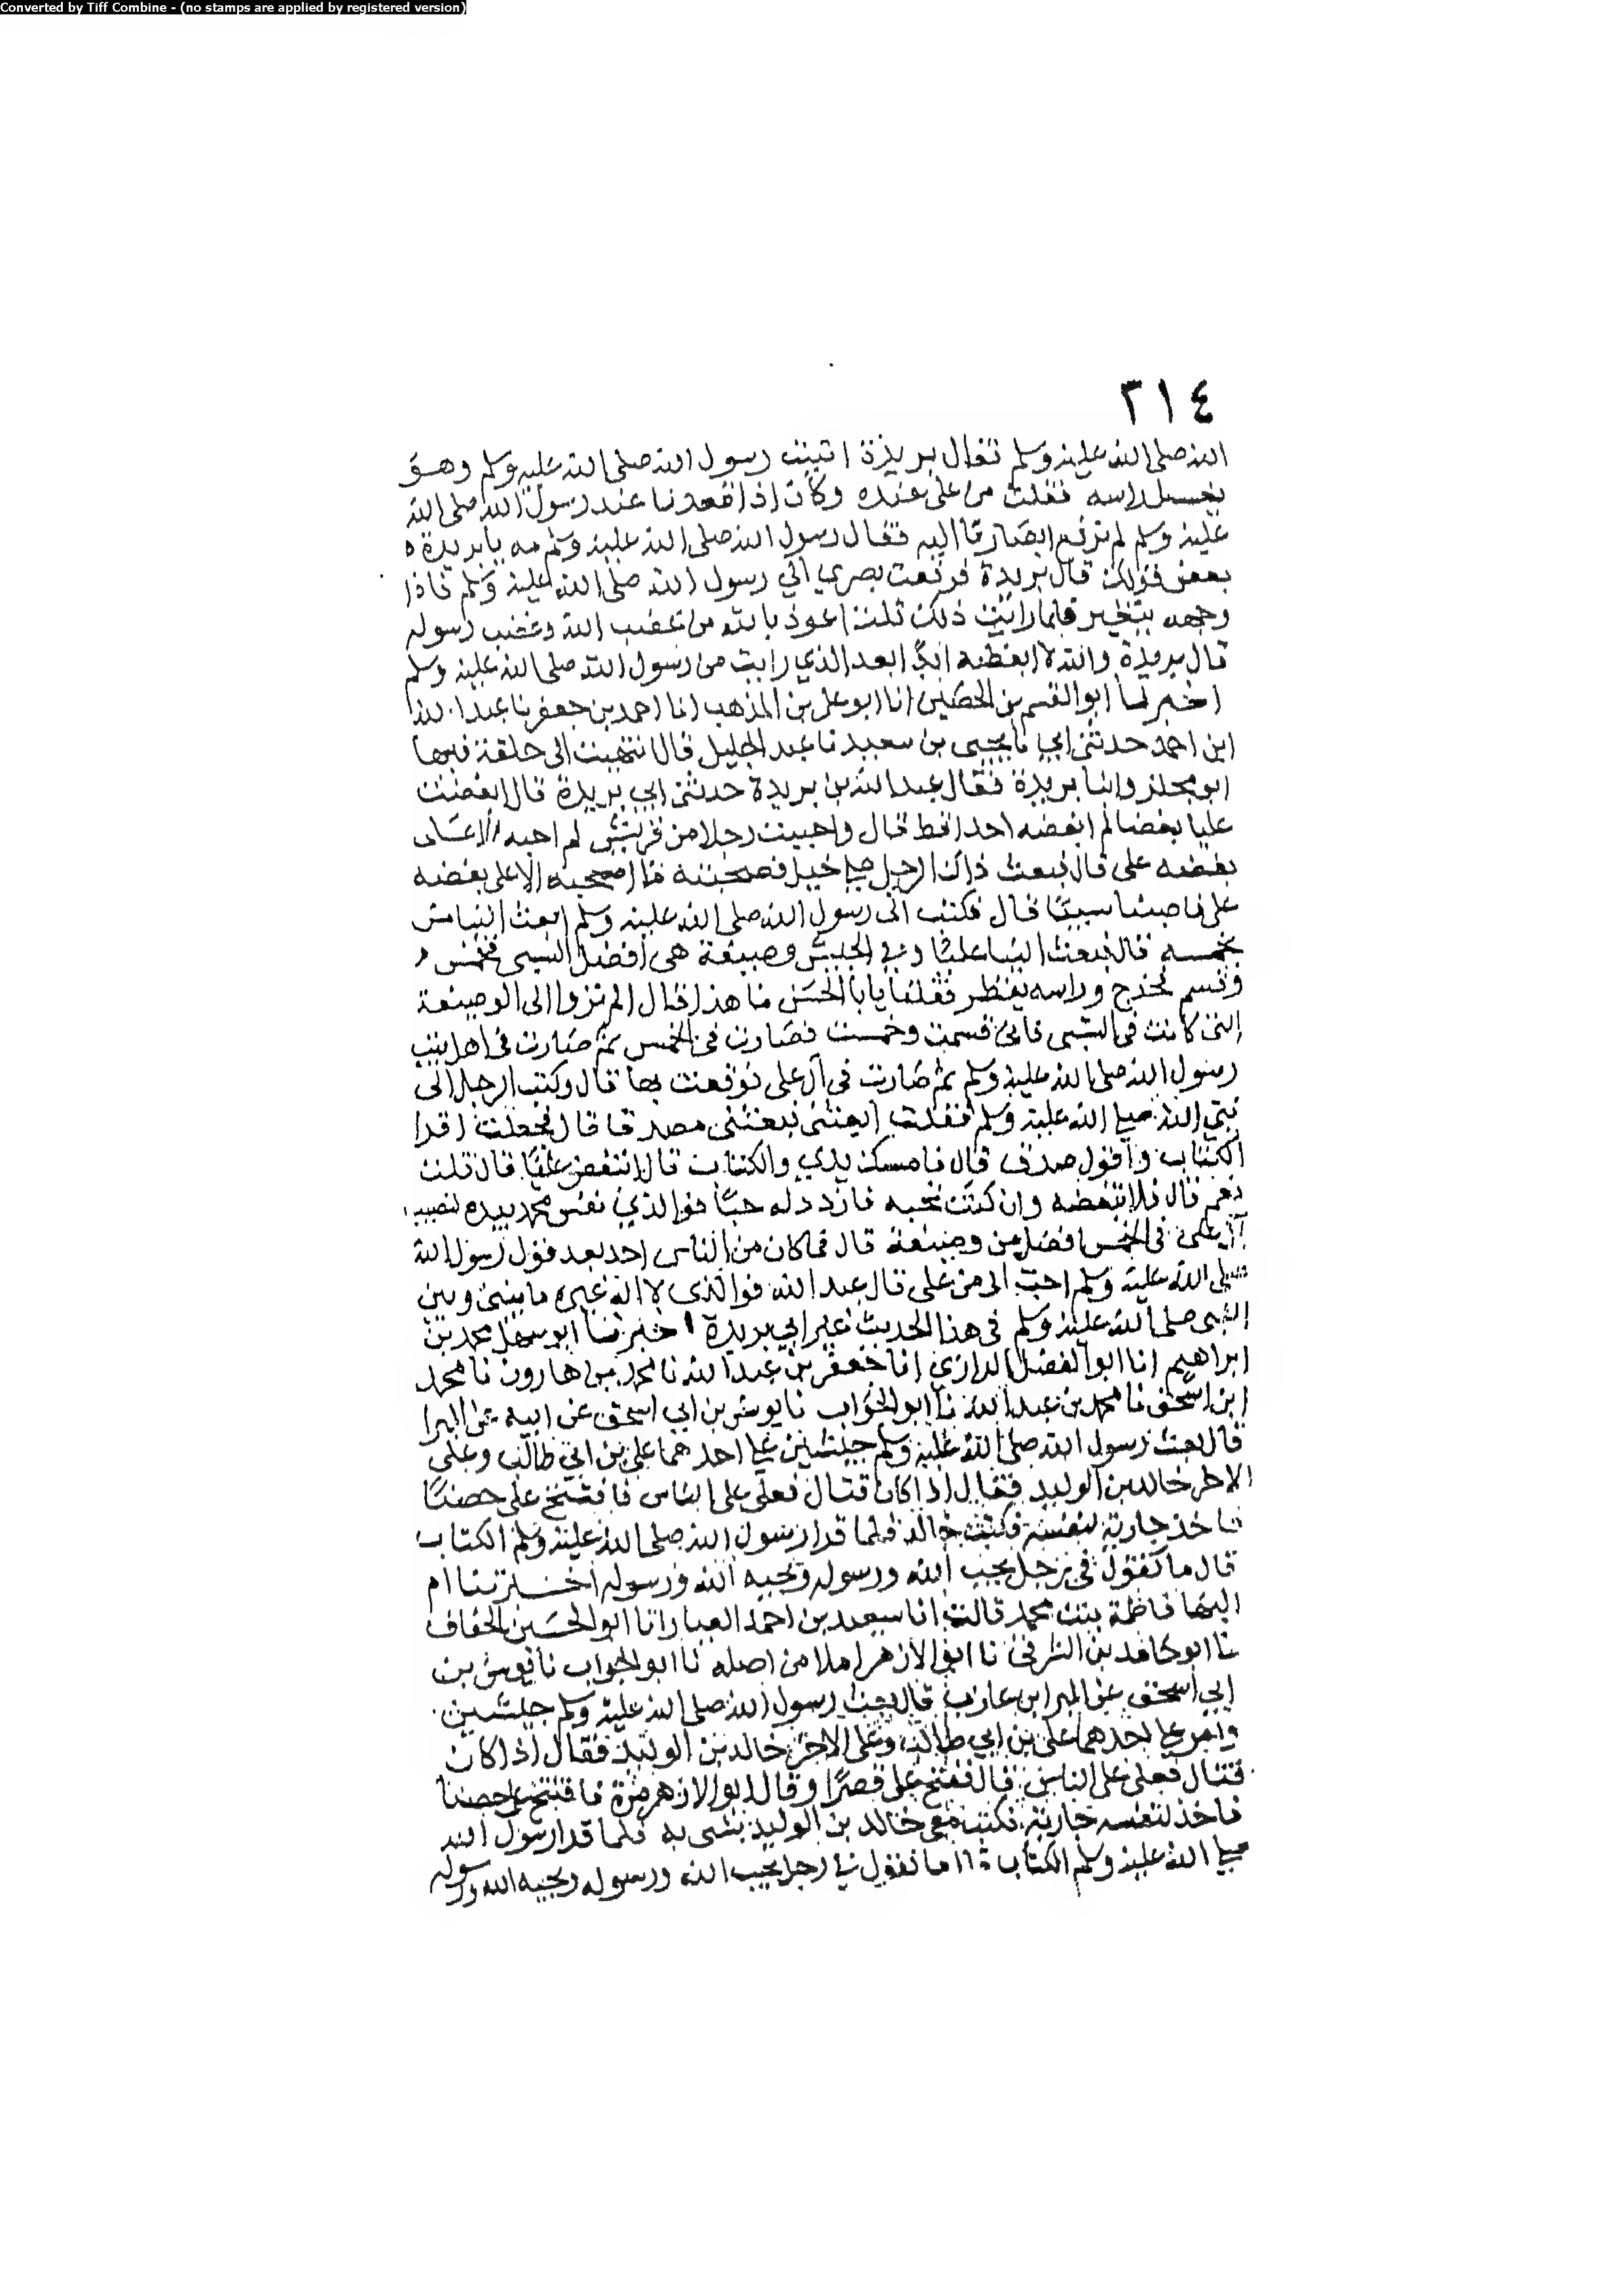 Converted by Tiff Combine - (no stamps are applied by registered version)
٢١٤
الله صلى الله عليه وسلم فقال بريدة اتيت رسول الله صلى الله عليه وسلم وهو
يغسل راسه فقلت من على عنده وكان اذا قعدنا عند رسول الله صلى الله
عليه وسلم لم نرفع ابصارنا اليه فقال رسول الله صلى الله عليه وسلم مه يا بريدة
بعض قولك قال بريدة فرفعت بصري الى رسول الله صلى الله عليه وسلم فاذا
وجهه يتغير فلما رايت ذلك قلت اعوذ بالله من غضب الله وغضب رسوله
قال بريدة والله لا ابغضه ابدًا بعد الذي رايت من رسول الله صلى الله عليه وسلم
اخبرنا ابو القسم بن الحصين انا ابو على بن المذهب انا احمد بن جعفر نا عبد الله
ابن احمد حدثني ابي نا يحيى بن سعيد نا عبد الجليل قال انتهيت الى حلقة فيها
ابو مجلز وابنا بريدة فقال عبد الله بن بريدة حدثني ابي بريدة قال ابغضت
عليا بغضا لم ابغضه احدا قط قال واحببت رجلا من قريش لم احبه الا على
بغضه على قال فبعث ذاك الرجل على خيل فصحبته ما اصحبه الا على بغضه
على فاصبنا سبيًا قال فكتب الى رسول الله صلى الله عليه وسلم ابعث الينا من
يخمسه قال فبعث الينا عليًا وفي الجيش وصيفة هى افضل السبى فخمس
وقسم فخرج وراسه يقطر فقلنا يا با الحسن ما هذا قال الم تروا الى الوصيفة
التى كانت فى السبى فانى قسمت وخمست فصارت فى الخمس ثم صارت فى اهل بيت
رسول الله صلى الله عليه وسلم ثم صارت فى آل على فوقعت بها قال وكتب الرجل الى
نبي الله صلى الله عليه وسلم فقلت ابعثنى فبعثنى مصدقا قال فجعلت اقرا
الكتاب واقول صدق قال فامسك يدي والكتاب قال اتبغض عليًا قال قلت
نعم قال فلا تبغضه وان كنت تحبه فازدد له حبًا فوالذي نفس محمد بيده لنصيب
آل على فى الخمس افضل من وصيفة قال فما كان من الناس احد بعد قول رسول الله
صلى الله عليه وسلم احب الى من على قال عبد الله فوالذى لا اله غيره ما بينى وبين
النبى صلى الله عليه وسلم فى هذا الحديث غير ابي بريدة اخبرنا ابو سهل محمد بن
ابراهيم انا ابو الفضل الرازي انا جعفر بن عبد الله نا محمد بن هارون نا محمد
ابن اسحق نا محمد بن عبد الله نا ابو الجواب نا يونس بن ابي اسحق عن ابيه عن البرا
قال بعث رسول الله صلى الله عليه وسلم جيشين على احدهما على بن ابي طالب وعلى
الاخر خالد بن الوليد فقال اذا كان قتال فعلى على الناس فافتتح على حصنًا
فاخذ جارية لنفسه فكتب خالد فلما قرا رسول الله صلى الله عليه وسلم الكتاب
قال ما تقول في رجل يحب الله ورسوله ويحبه الله ورسوله اخبرتنا ام
البها فاطمة بنت محمد قالت انا سعيد بن احمد العيار انا ابو الحسين الخفاف
نا ابو حامد بن الشرقى نا ابو الازهر املا من اصله نا ابو الجواب نا يونس بن
ابي اسحق عن البرا بن عازب قال بعث رسول الله صلى الله عليه وسلم جيشين
وامر على احدهما على بن ابي طالب وعلى الاخر خالد بن الوليد فقال اذا كان
قتال فعلى على الناس قال ففتح على قصرًا وقال ابو الازهر مرة فافتتح على حصنا
فاخذ لنفسه جارية فكتب معى خالد بن الوليد يشى به فلما قرا رسول الله
صلى الله عليه وسلم الكتاب قال ما تقول في رجل يحب الله ورسوله ويحبه الله ورسوله